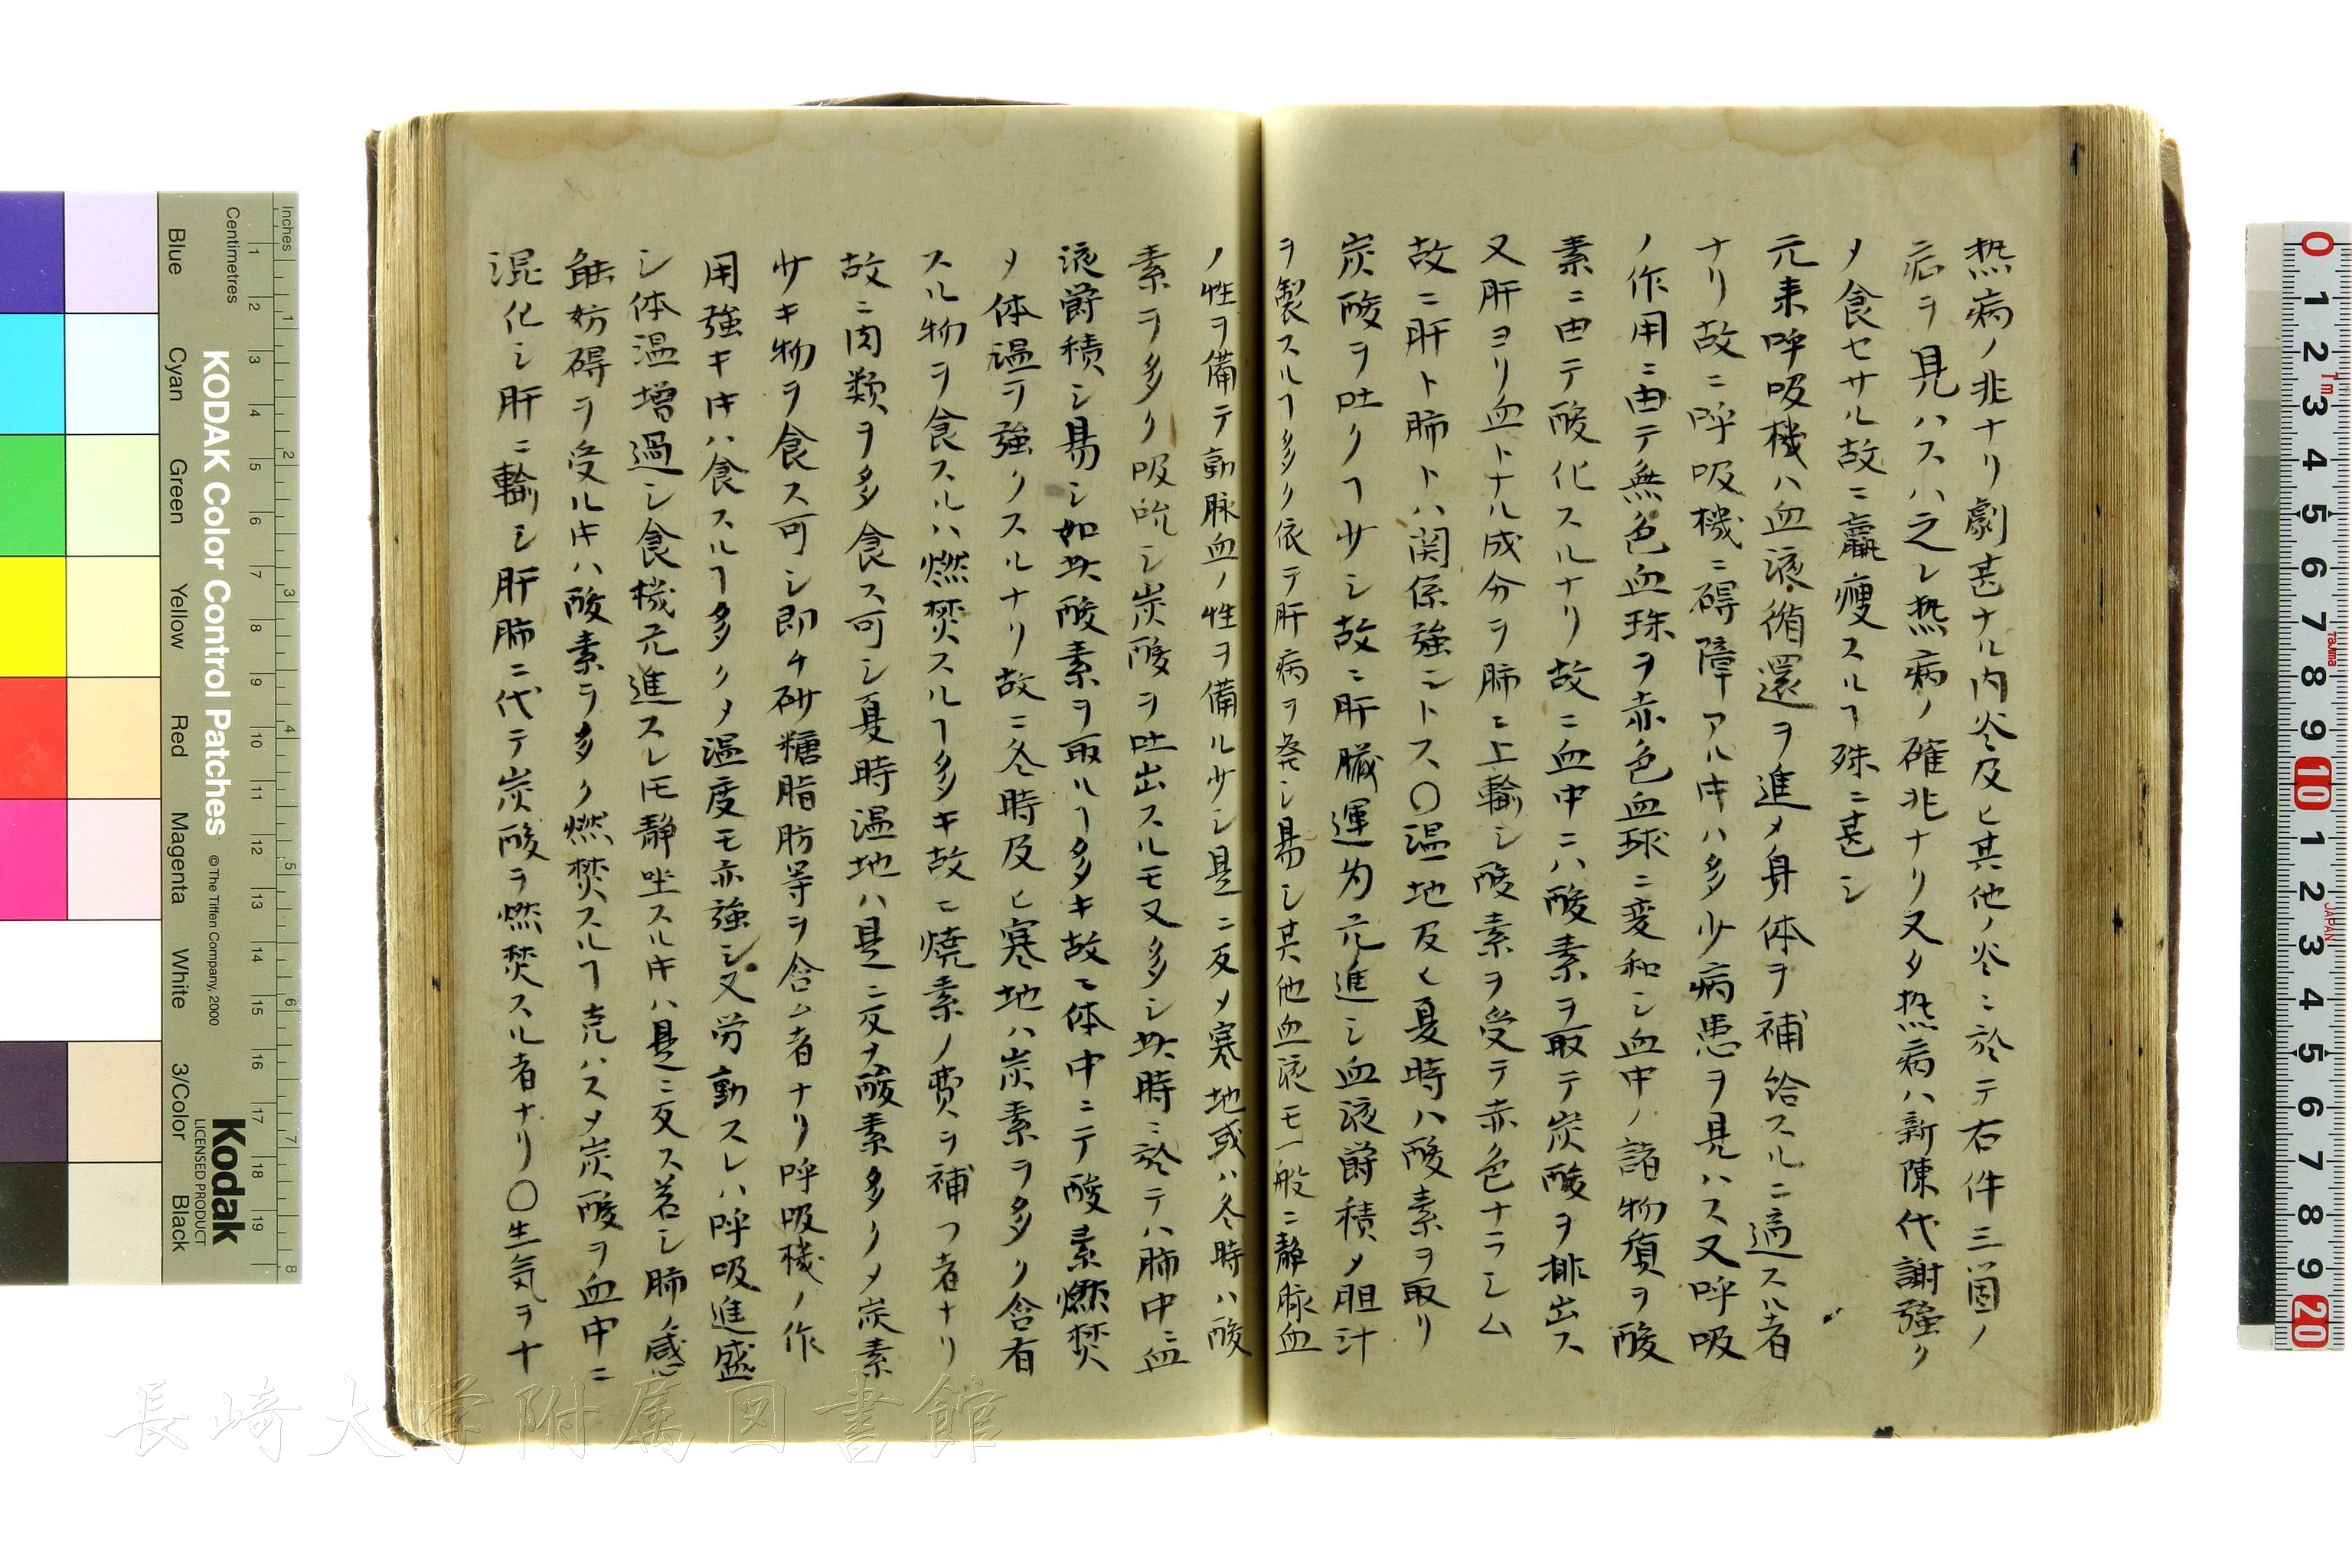 热病ノ非ナリ劇甚ナル内炎及ヒ其他ノ炎ニ於テ右件三箇ノ
症ヲ見ハスハ之レ热病ノ確非ナリ又タ热病ハ新陳代謝強ク
メ食セサル故ニ羸痩スルヿ殊ニ甚シ
元来呼吸機ハ血液循還ヲ進メ身体ヲ補給スルニ適スル者
ナリ故ニ呼吸機ニ碍障アルキハ多少病患ヲ見ハス又呼吸
ノ作用ニ由テ無色血珠ヲ赤色血球ニ変和シ血中ノ諸物質ヲ酸
素ニ由テ酸化スルナリ故ニ血中ニハ酸素ヲ取テ炭酸ヲ排出ス
又肝ヨリ血トナル成分ヲ肺ニ上輸シ酸素ヲ受テ赤色ナラシム
故ニ肝ト肺トハ関係強シトス〇温地及ヒ夏時ハ酸素ヲ取リ
炭酸ヲ吐クヿ少シ故ニ肝臓運為亢進シ血液欝積メ胆汁
ヲ製スルヿ多ク依テ肝病ヲ発シ易シ其他血液モ一般ニ静脉血
ノ性ヲ備テ動脉血ノ性ヲ備ル少シ是ニ反メ寒地或ハ冬時ハ酸
素ヲ多ク吸吮シ炭酸ヲ吐出スルモ又多シ此時ニ於テハ肺中ニ血
液欝積シ易シ如此酸素ヲ取ルヿ多キ故ニ体中ニテ酸素燃焚
メ体温ヲ強クスルナリ故ニ冬時及ヒ寒地ハ炭素ヲ多ク含有
スル物ヲ食スルハ燃焚スルヿ多キ故ニ焼素ノ費ヲ補フ者ナリ
故ニ肉類ヲ多食ス可シ夏時温地ハ是ニ反メ酸素多クメ炭素
少キ物ヲ食ス可シ即チ砂糖脂肪等ヲ含ム者ナリ呼吸機ノ作
用強キキハ食スルヿ多クメ温度モ亦強シ又労動スレハ呼吸進盛
シ体温増過シ食機亢進スレ𪜈静坐スルキハ是ニ反ス若シ肺ノ感
触妨碍ヲ受ルキハ酸素ヲ多ク燃焚スルヿ克ハスメ炭酸ヲ血中ニ
混化シ肝ニ輸シ肝肺ニ代テ炭酸ヲ燃焚スル者ナリ〇生気ヲナ
長崎大学附属図書館
Inches
Centimetres
KODAK Color Control Patches
© The Tiffen Company, 2000
Kodak
LICENSED PRODUCT
Blue Cyan Green Yellow Red Magenta White 3/Color Black
1 2 3 4 5 6 7 8 9 10 11 12 13 14 15 16 17 18 19
1 2 3 4 5 6 7 8
0 1 2 3 4 5 6 7 8 9 10 1 2 3 4 5 6 7 8 9 20
Tajima
JAPAN